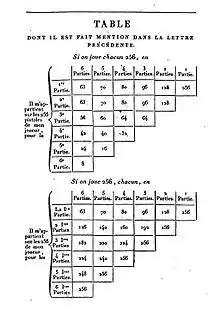 TABLE
DONT IL EST FAIT MENTION DANS LA LETTRE
PRÉCÉDENTE.
Si on joue chacun 256, en
6 5 4 3 2 1
Parties. Parties. Parties. Parties. Parties. Partie.
Il m'ap-
partient
sur les 256
pistoles
de mon
joueur,
pour la
1re Partie. 63 70 80 96 128 256
2e Partie. 63 70 80 96 128
3e Partie. 56 60 64 64
4e Partie. 42 40 32
5e Partie. 24 16
6e Partie. 8
Si on joue 256, chacun, en
6 5 4 3 2 1
Parties. Parties. Parties. Parties. Parties. Partie.
Il m'ap-
partient
sur les 256
de mon
joueur,
pour les
La 1re Partie. 63 70 80 96 128 256
2 1res Parties. 126 140 160 192 256
3 1res Parties. 182 200 224 256
4 1res Parties. 224 240 256
5 1res Parties. 248 256
6 1res Parties. 256